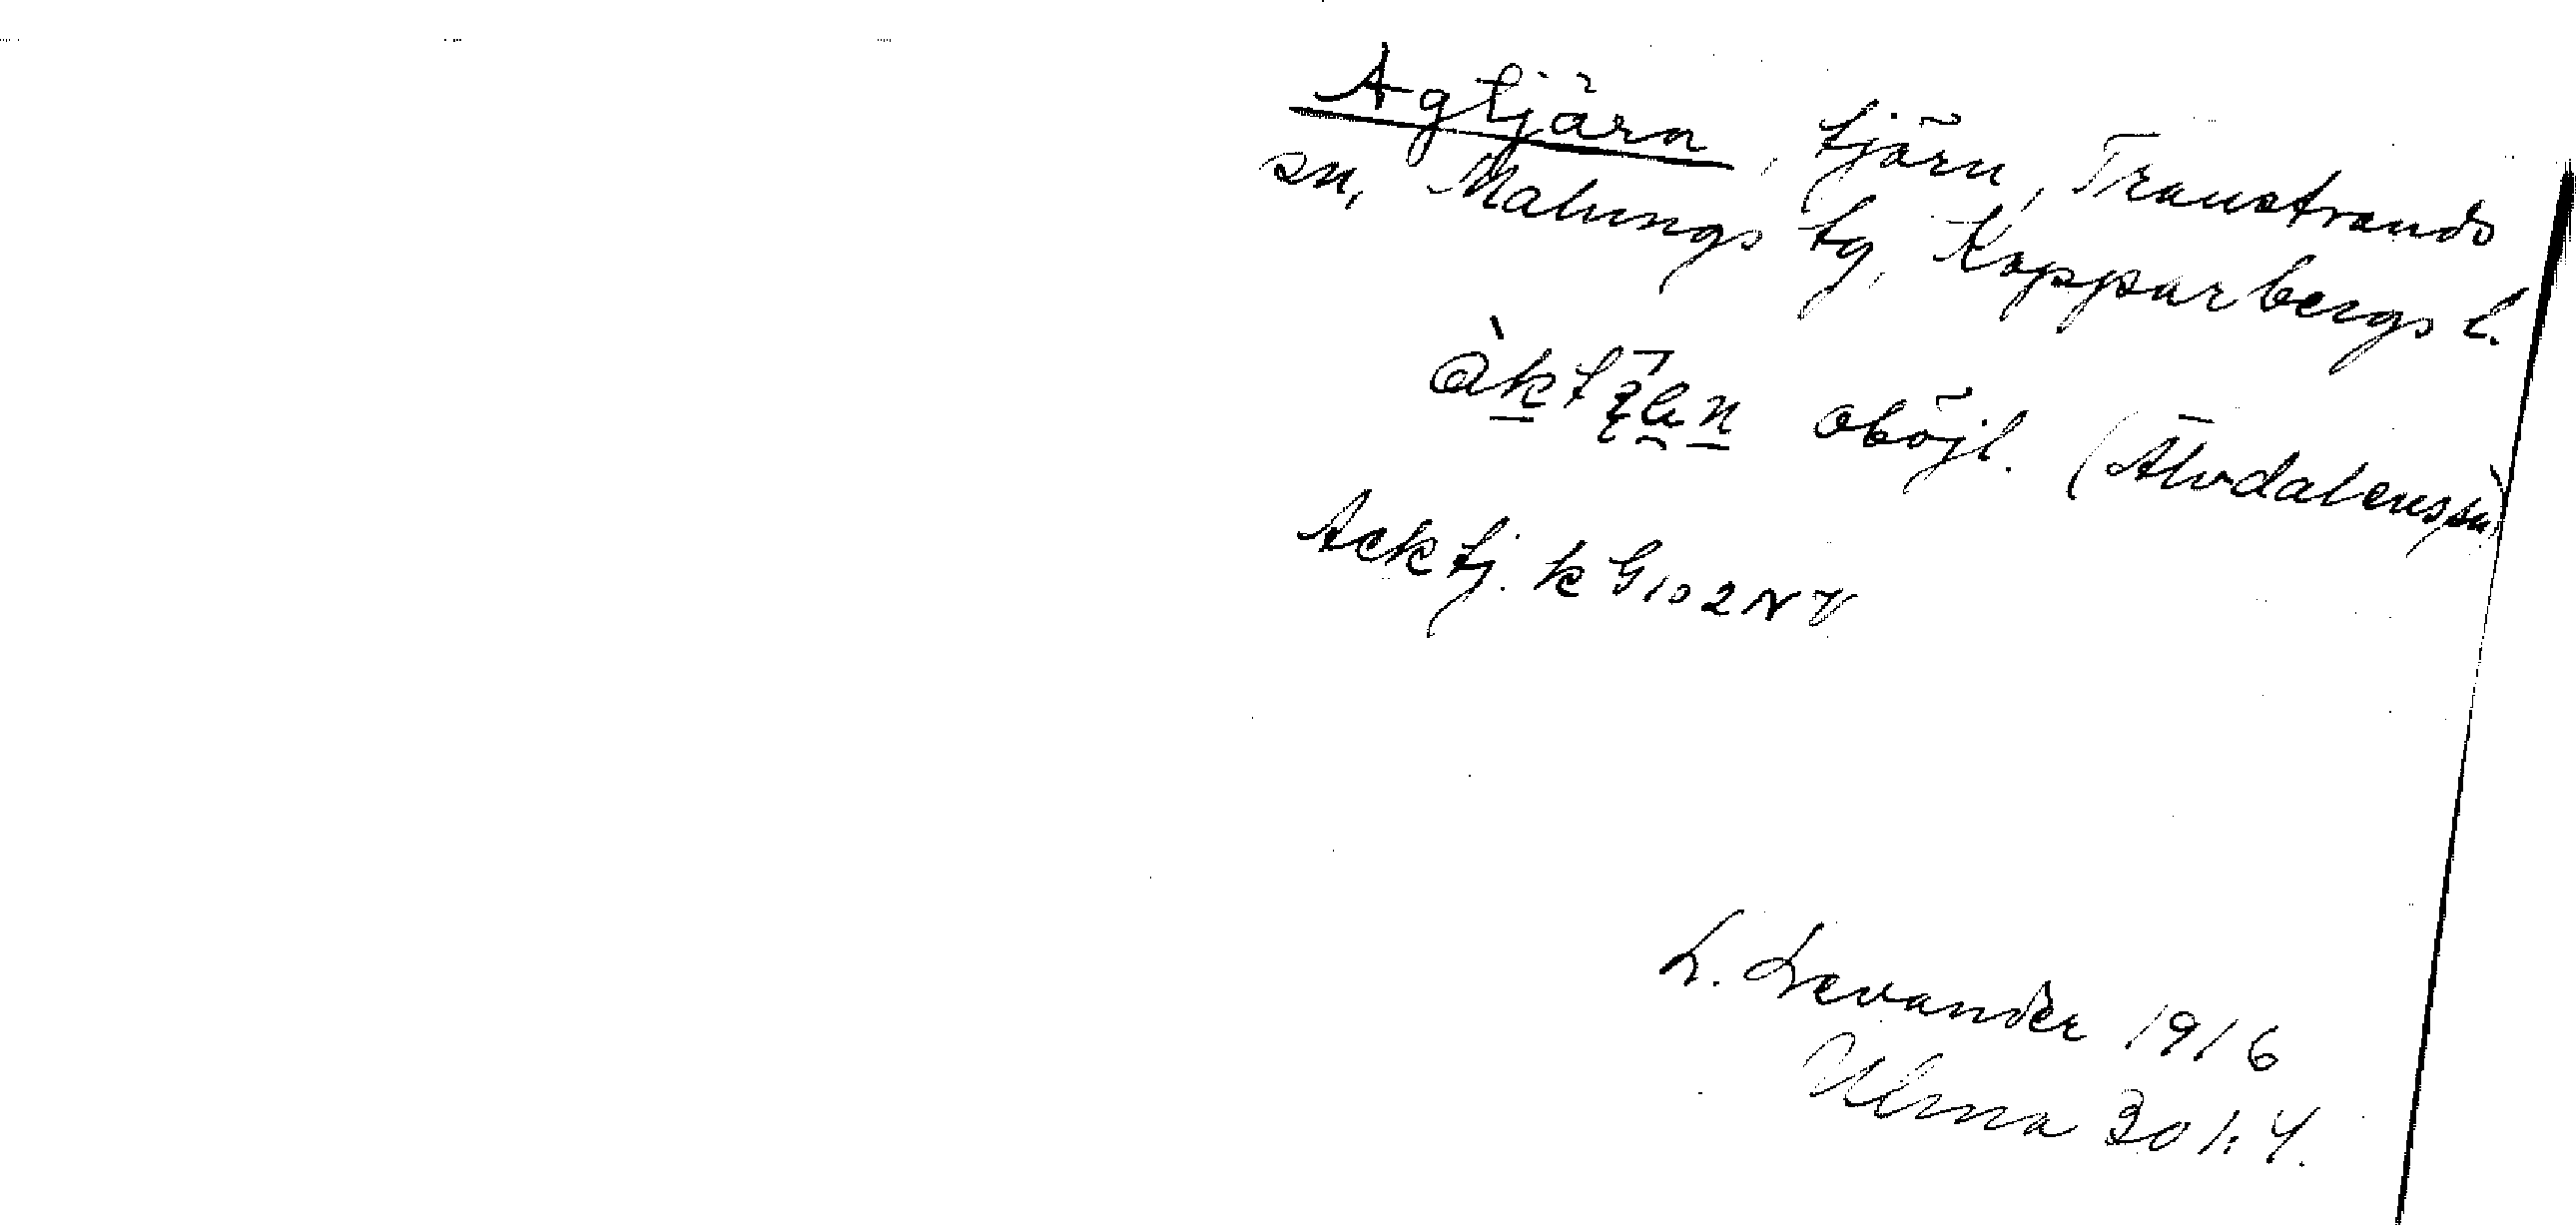 Agtjärn, tjärn, Transtrands
sn, Malungs tg, Kopparbergs l.
oböjl. (Älvdalens sn)
Acktj. k G 102 NV
L. Levander 1916
Ulma 301:4.